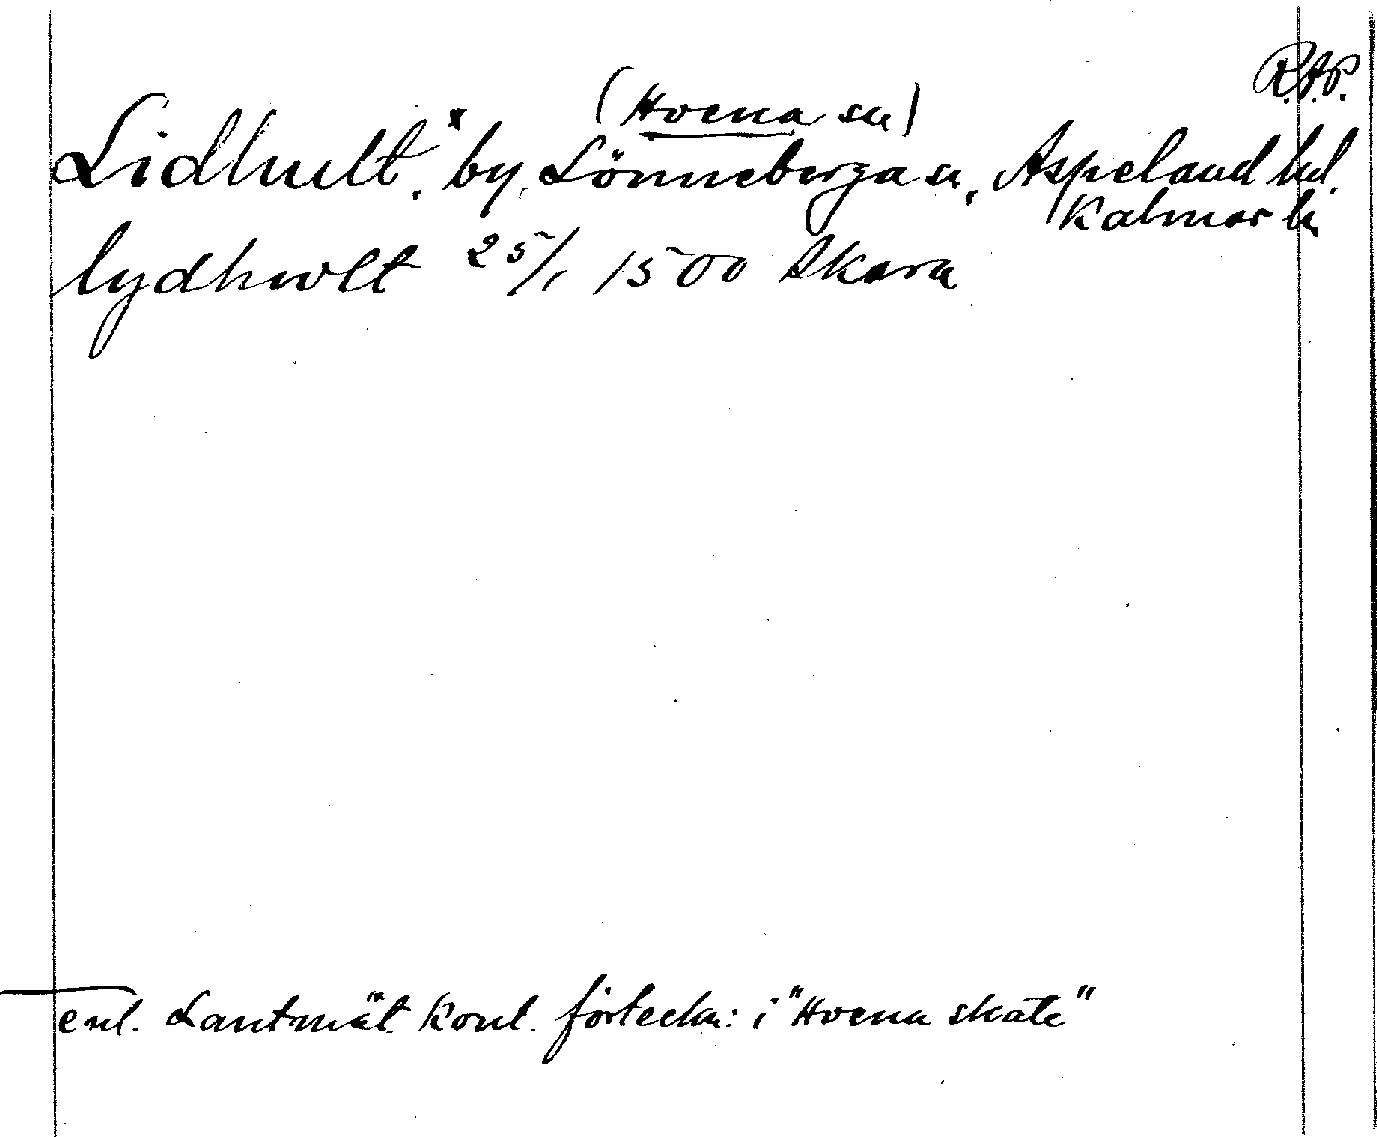 R.A.P.
(Hvena sn)
Lidhult.x by, Lönneberga sn, Aspeland hd.
Kalmar län
lydhwlt 25/1 1500 Skara
enl. Lantmät. kont. förteckn: i "Hvena skate"